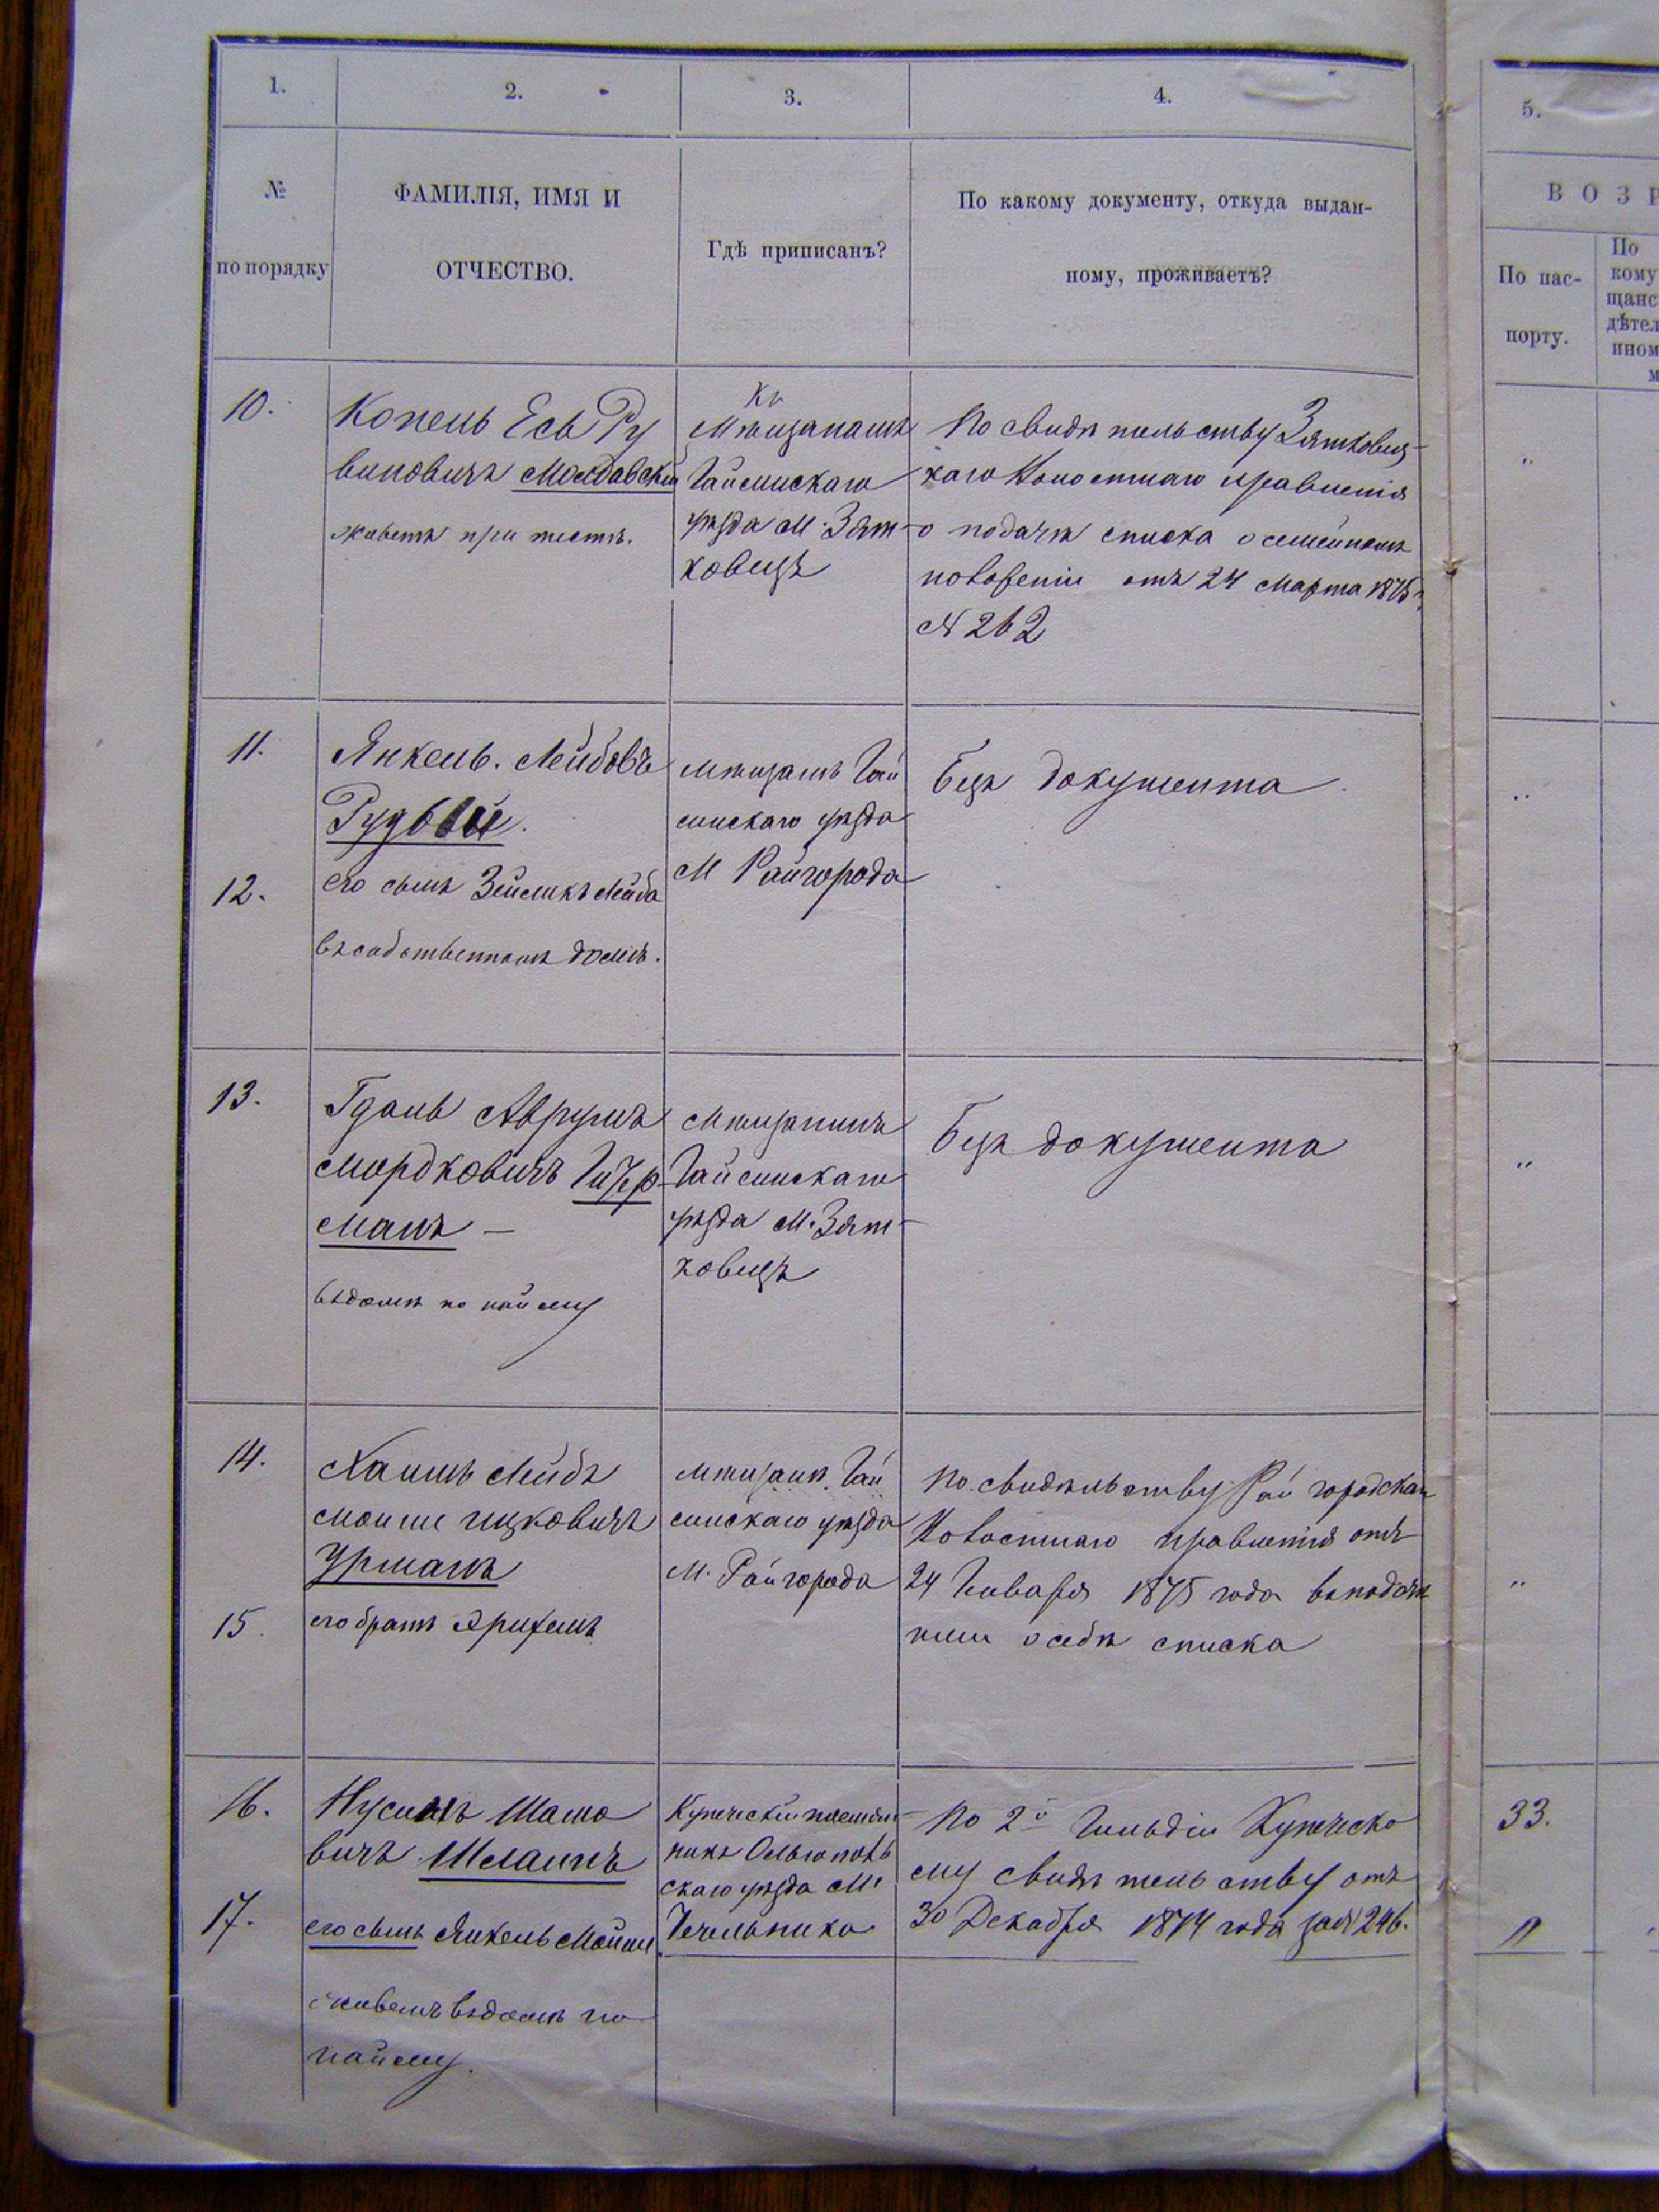 1.
2.
3.
4.
5.
№
по порядку
ФАМИЛІЯ, ИМЯ И
ОТЧЕСТВО.
Гдѣ приписанъ?
По какому документу, откуда выдан-
ному, проживаетъ?
ВОЗР
По пас-
порту.
По
кому
щанс
дѣтел
ином
м
10.
Копель Есь Ру
виновичъ Молдавскій
живетъ при тестѣ.
Мѣщанинъ
Гайсинскаго
уѣзда М. Зят-
ковецъ
По свидѣтельству Зятковец-
каго Волостнаго правленія
о подачѣ списка о семейномъ
положеніи отъ 24 Марта 1875 г.
№ 262
„
11.
Янкель Лейбовъ
Рудый.
12.
его сынъ Зейликъ Лейба
въ собственномъ домѣ.
мѣщанинъ Гай
синскаго уѣзда
М Райгорода
Безъ документа
„
13.
Гдаль Аврумъ
Мордковичъ
манъ —
въ домѣ по найму
Мѣщанинъ
Гайсинскаго
уѣзда М. Зят-
ковецъ
Безъ документа
„
14.
Хаимъ Лейбъ
Мошко Ицковичъ
Урманъ
15.
его братъ
мѣщан. Гай
синскаго уѣзда
М. Райгорода
По свидѣтельству Райгородскаго
Волостнаго правленія отъ
24 Января 1875 года въ подачѣ
ими о себѣ списка
„
16.
Нусинъ Шамо
вичъ
17.
его сынъ Янкель Мошко
живетъ въ домѣ по
найму.
Купеческій племян
никъ Ольгополь
скаго уѣзда М.
Чечельника
По 2й Гильдіи Купеческо
му свидѣтельству отъ
30 Декабря 1874 года за № 246.
33.